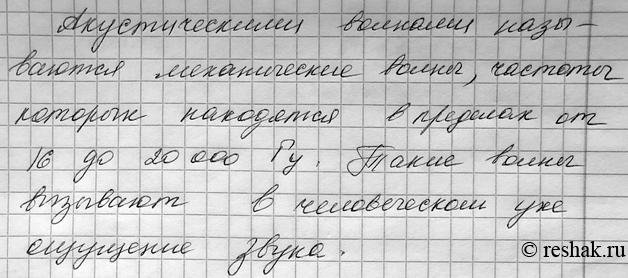 Акустическими волнами назы-
ваются механические волны, частоты
которых находятся в пределах от
16 до 20 000 Гц. Такие волны
вызывают в человеческом ухе
ощущение звука.
© reshak.ru